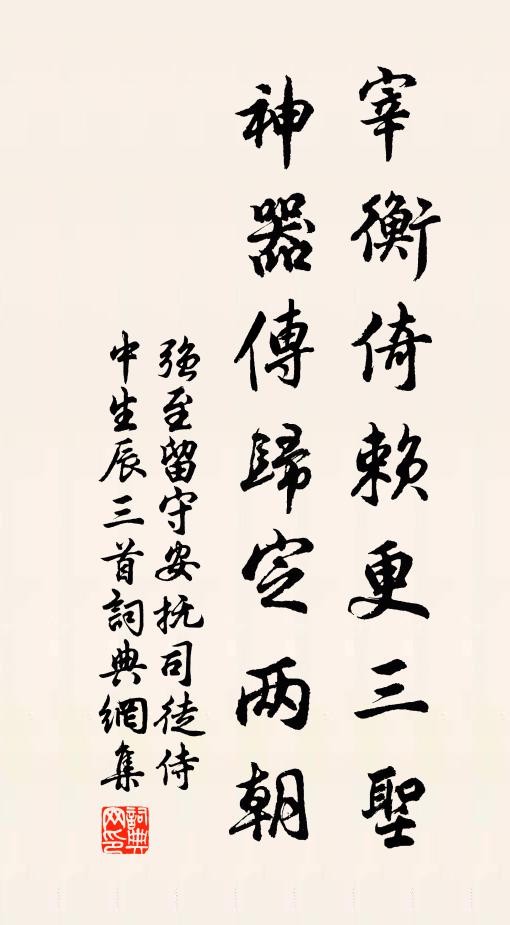 宰衡倚赖更三聖
神器傳歸定两朝
强至留守安抚司徒侍
中生辰三首詞典網集
詞典网印